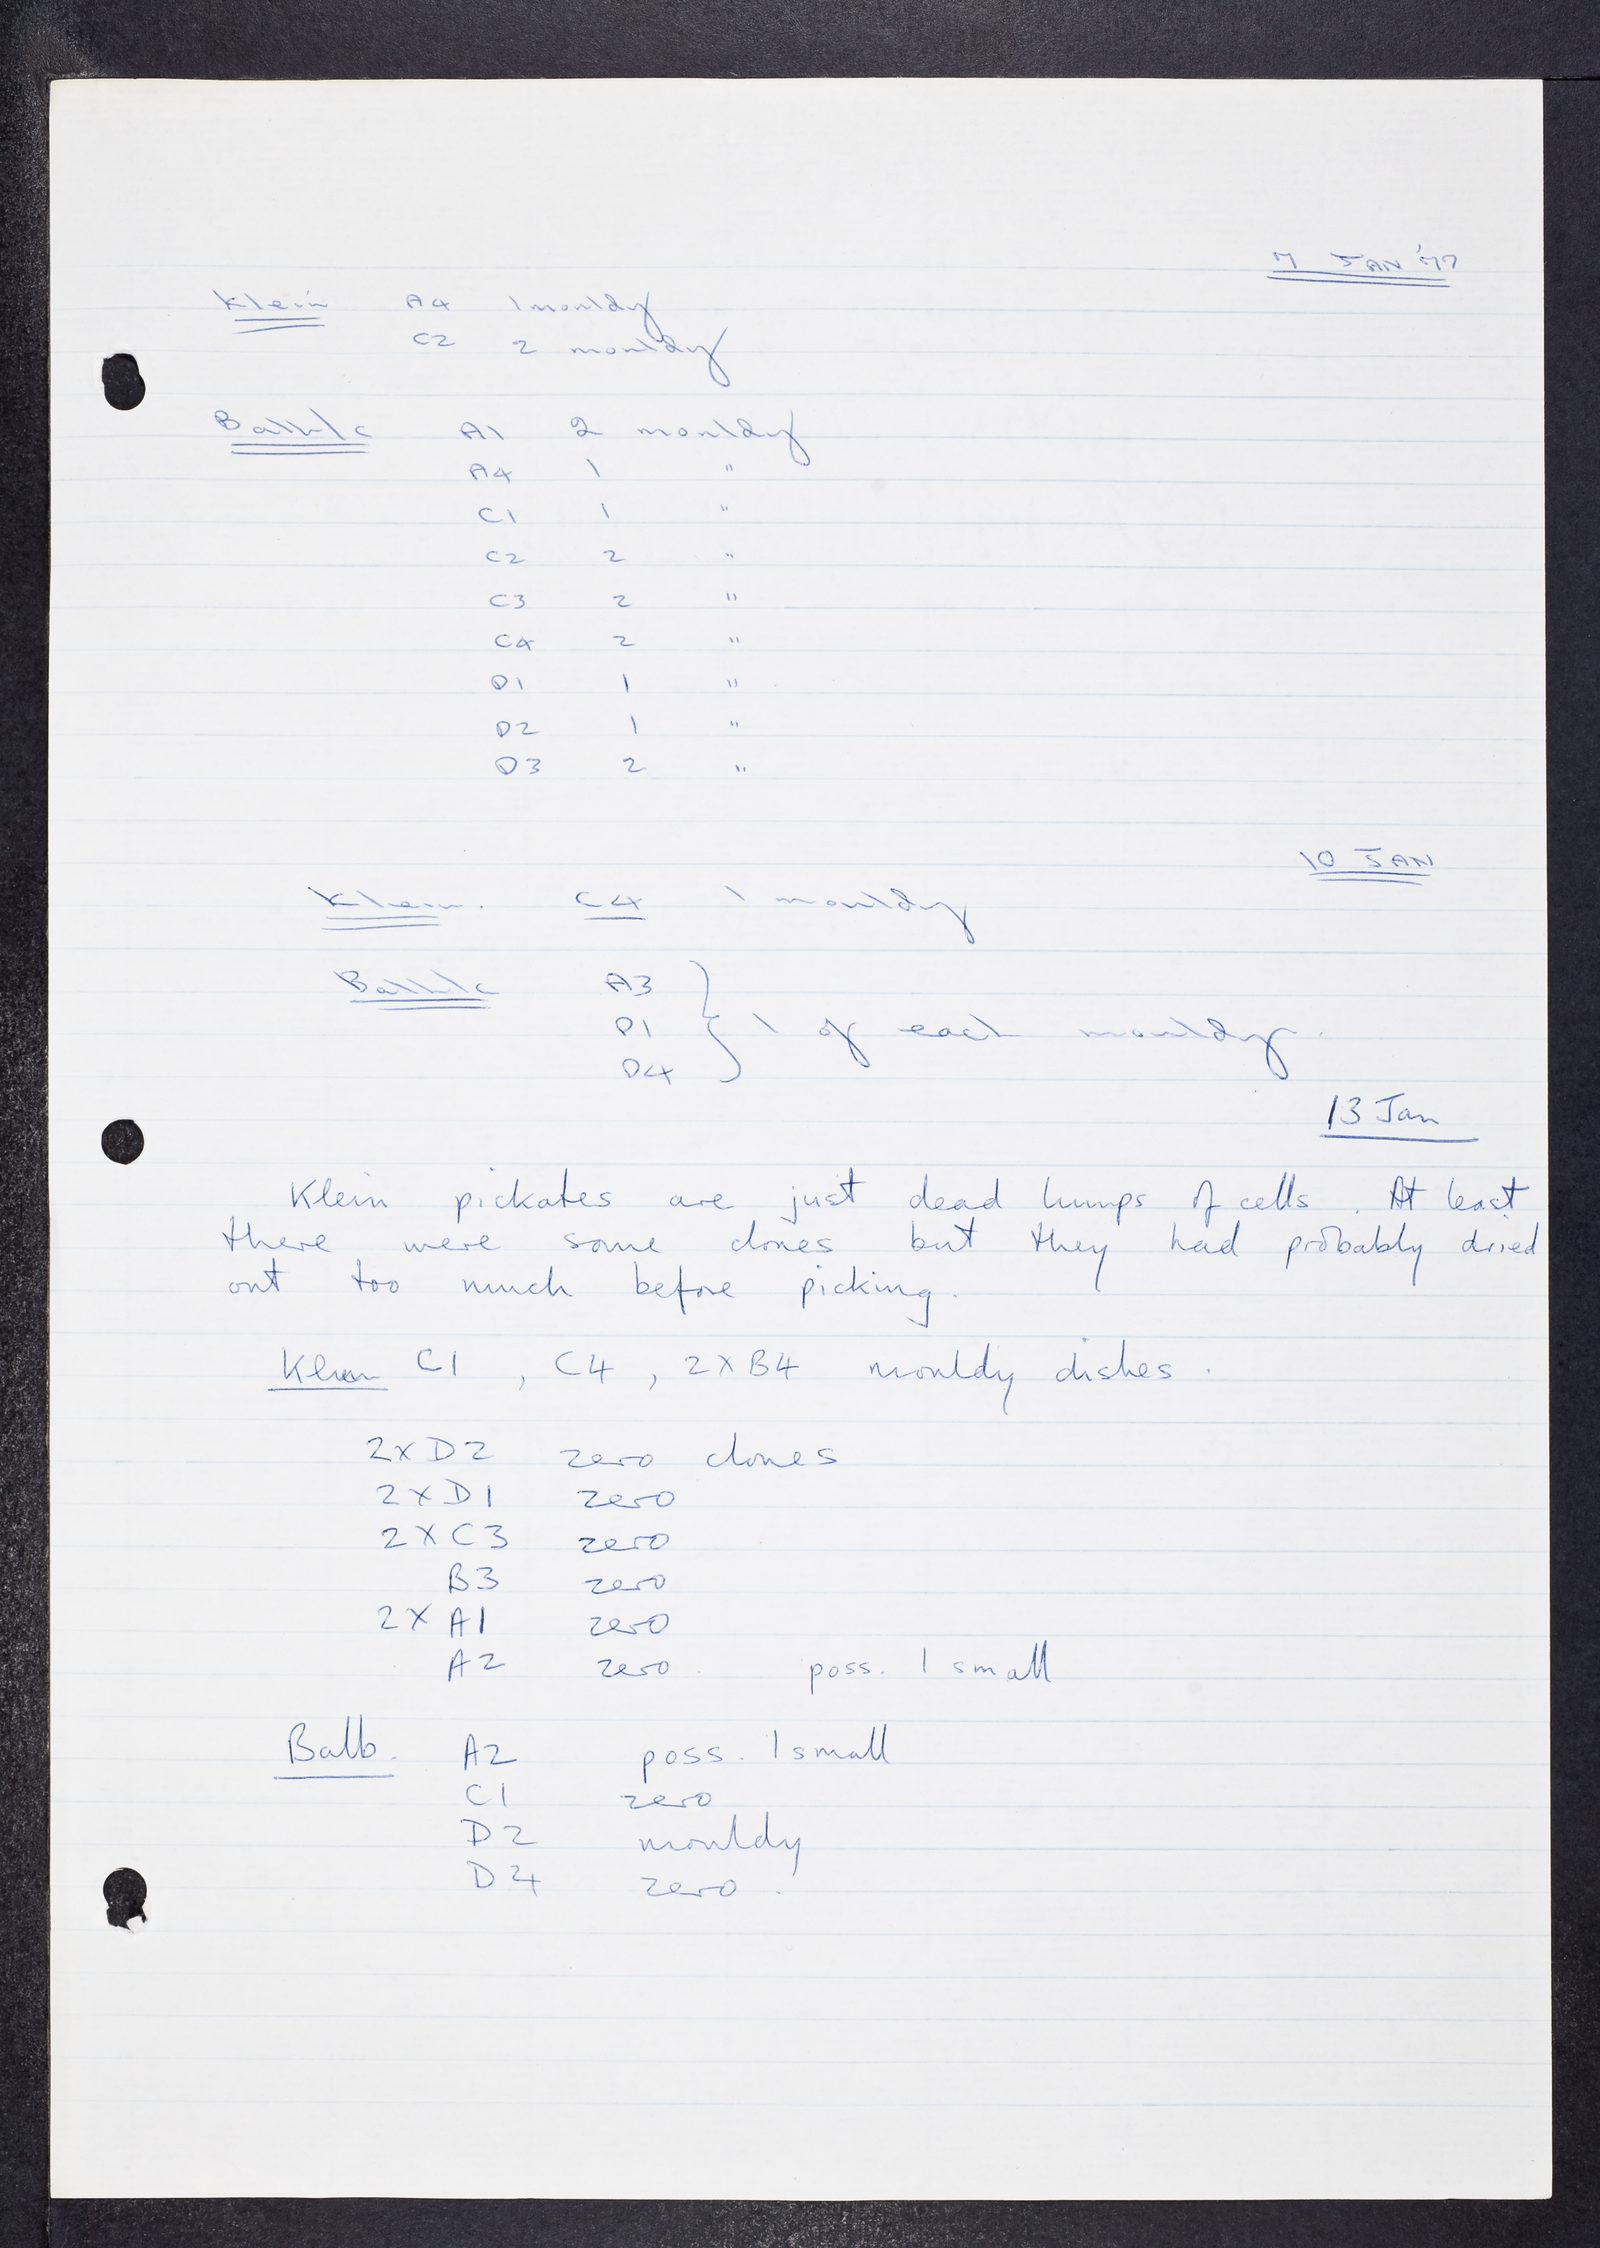 7 JAN '77
Klein A4 1 mouldy
C2 2 mouldy
Balb/c A1 2 mouldy
A4 1 "
C1 1 "
C2 2 "
C3 2 "
C4 2 "
D1 1 "
D2 1 "
D3 2 "
10 JAN
Klein. C4 1 mouldy
Balb/c A3
D1 } 1 of each mouldy.
D4
13 Jan
Klein pickates are just dead lumps of cells. At least
there were some clones but they had probably dried
out too much before picking.
Klein C1, C4, 2×B4 mouldy dishes.
2×D2 zero clones
2×D1 zero
2×C3 zero
B3 zero
2×A1 zero
A2 zero. poss. 1 small
Balb. A2 poss. 1 small
C1 zero
D2 mouldy
D4 zero.